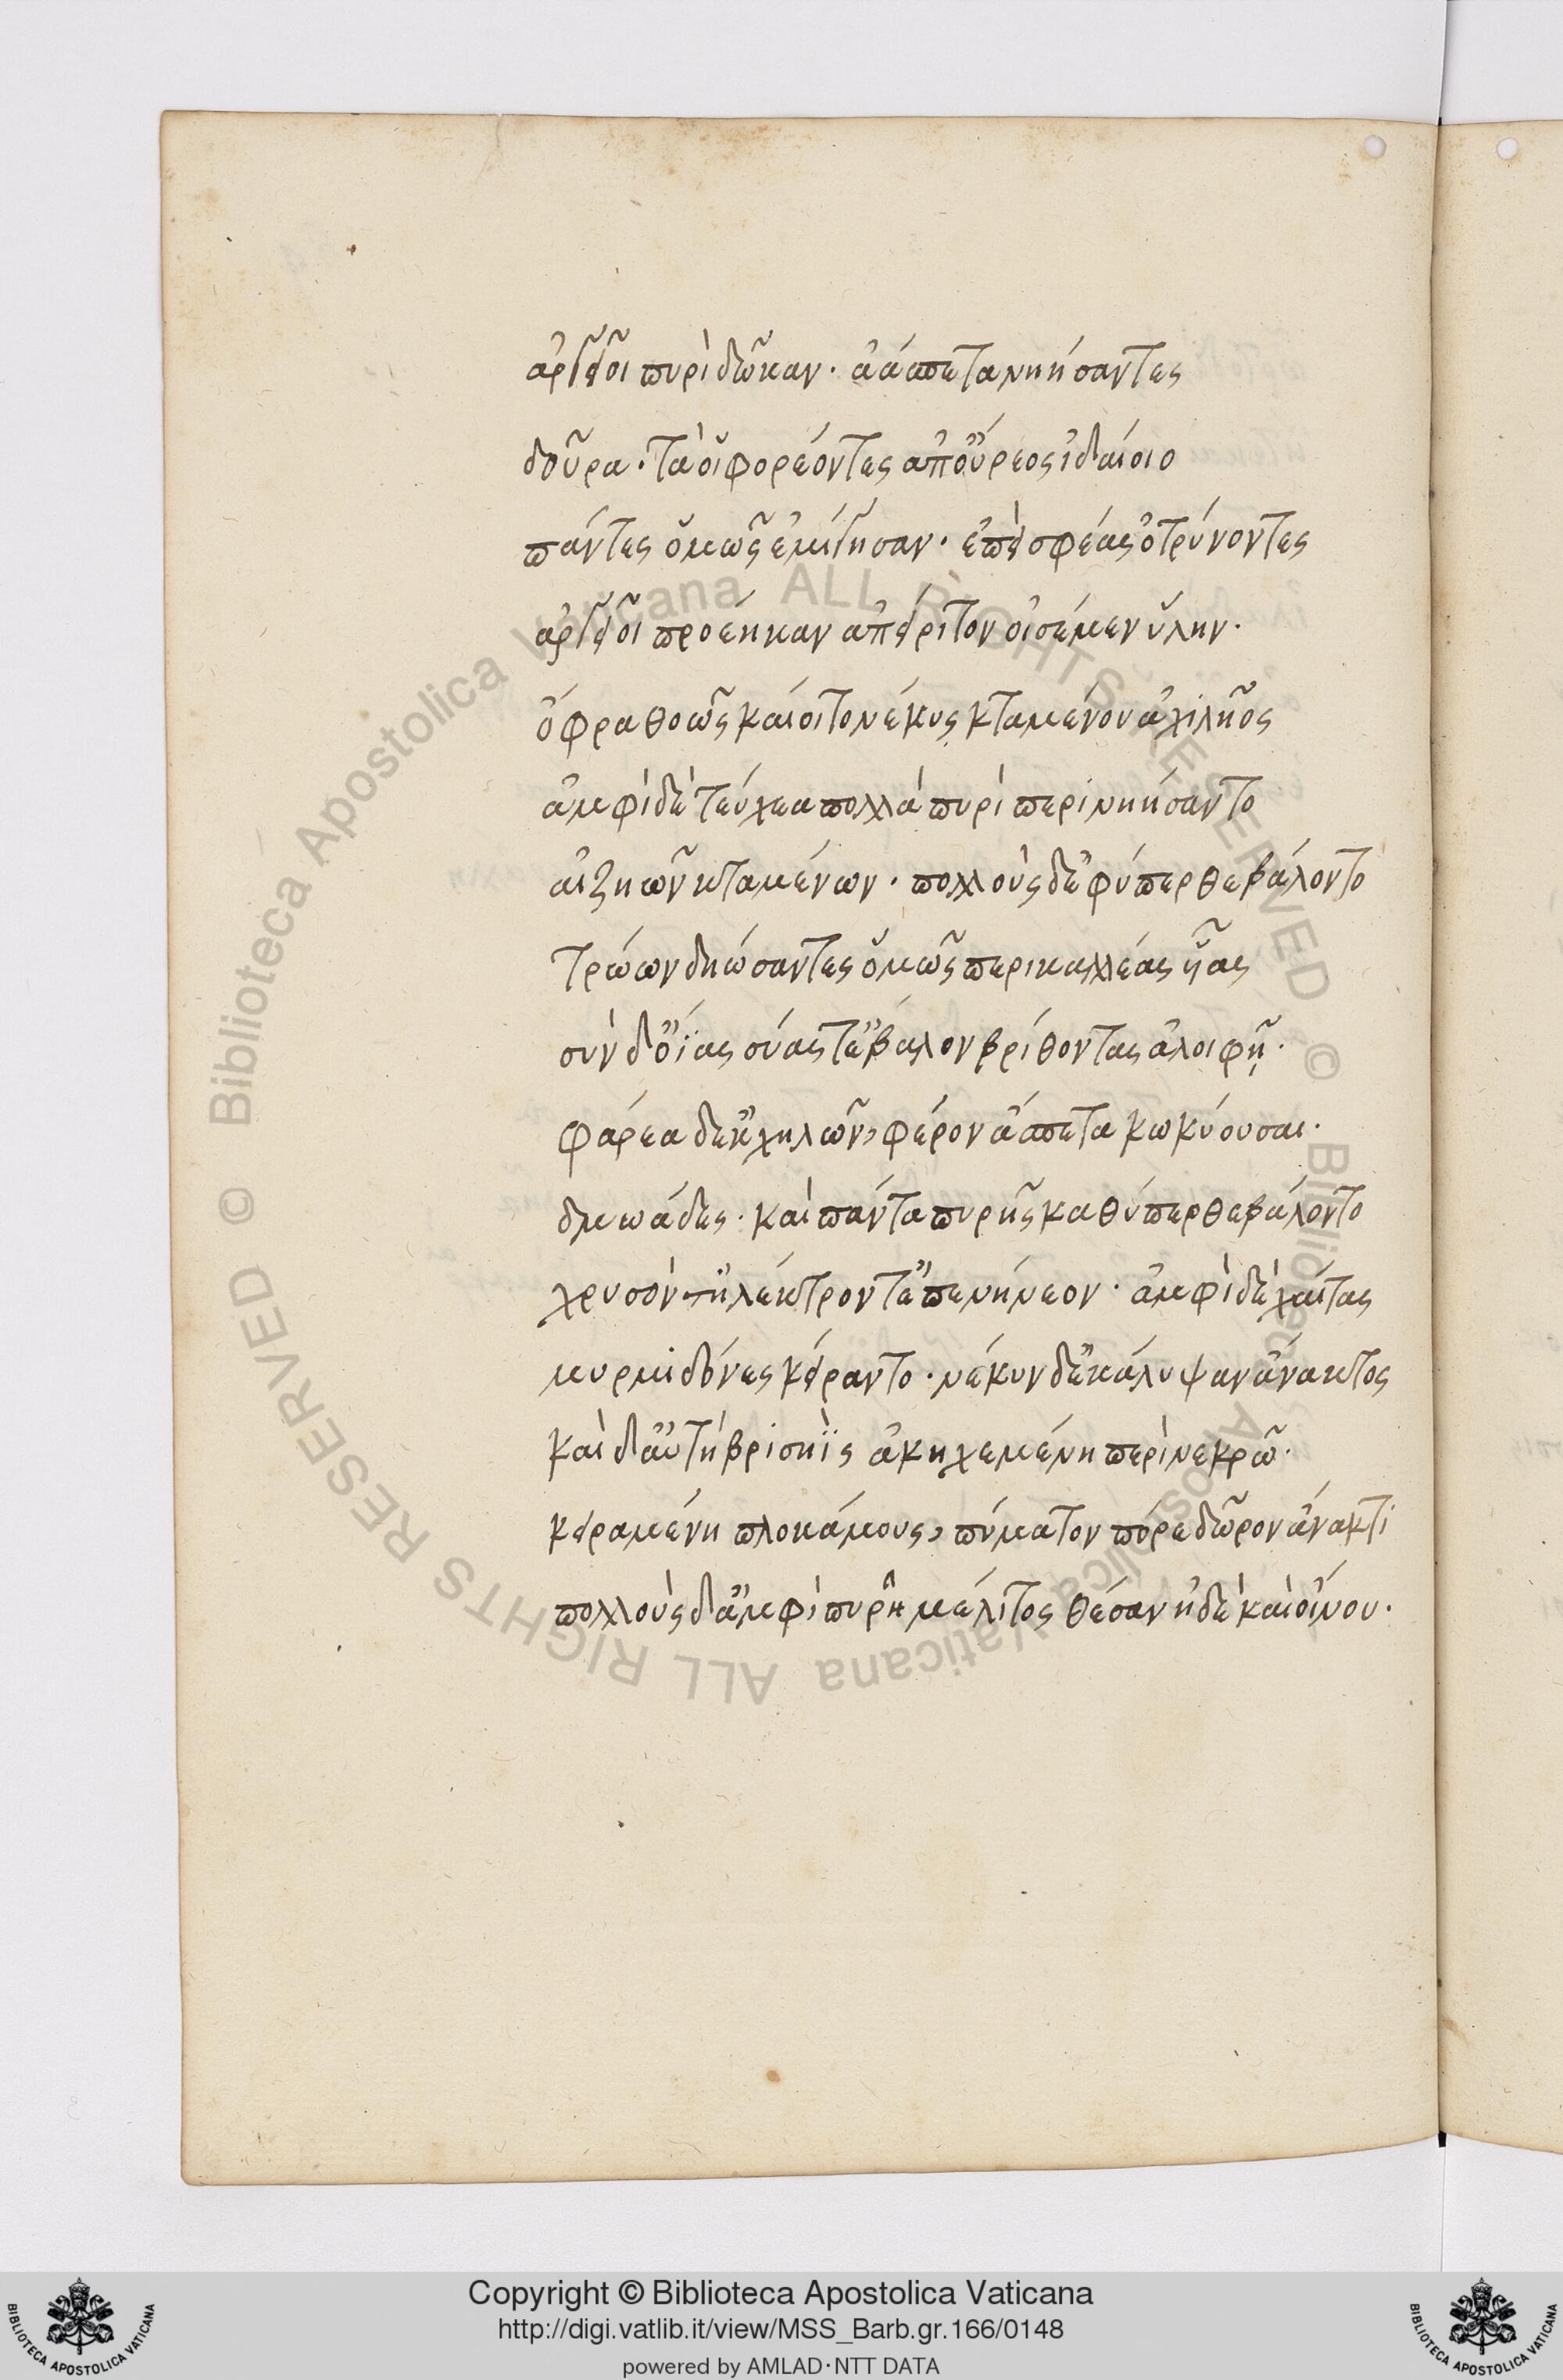 ἀργεῖοι πυρὶ δῶκαν· ἀάσπετα νηήσαντες
δοῦρα· τά οἱ φορέοντες ἀπ' οὔρεος ἰδαίοιο
πάντες ὅμως ἐμόγησαν· ἐπεὶ σφέας ὀτρύνοντες
ἀργεῖοι προέηκαν ἀπείριτον οἰσέμεν ὕλην·
ὄφρα θοῶς καίοιτο νέκυς κταμένου ἀχιλῆος
ἀμφὶ δὲ τεύχεα πολλὰ πυρὶ περινηήσαντο
αἰζηῶν κταμένων· πολλοὺς δ' ἐφύπερθε βάλοντο
τρώων δηώσαντες ὅμως περικαλλέας υἷας
σὺν δ' ὄϊας σύας τ' ἔβαλον βρίθοντας ἀλοιφῇ·
φάρεα δ' ἐκ χηλῶν, φέρον ἀάσπετα κωκύουσαι·
δμωάδες· καὶ πάντα πυρῆς καθύπερθε βάλοντο
χρυσόν τ' ἤλεκτρόν τ' ἐπενήνεον· ἀμφὶ δὲ χαίτας
μυρμιδόνες κείραντο· νέκυν δ' ἐκάλυψαν ἄνακτος
καὶ δ' αὐτὴ βρισηῒς ἀκηχεμένη περὶ νεκρῷ·
κειραμένη πλοκάμους, πύματον πόρε δῶρον ἄνακτι
πολλοὺς δ' ἀμφὶ πυρῇ μέλιτος θέσαν ἠδὲ καὶ οἴνου·
© Biblioteca Apostolica Vaticana ALL RIGHTS RESERVED © Biblioteca Apostolica Vaticana ALL RIGHTS RESERVED
Copyright © Biblioteca Apostolica Vaticana
http://digi.vatlib.it/view/MSS_Barb.gr.166/0148
powered by AMLAD·NTT DATA
BIBLIOTECA APOSTOLICA VATICANA
BIBLIOTECA APOSTOLICA VATICANA